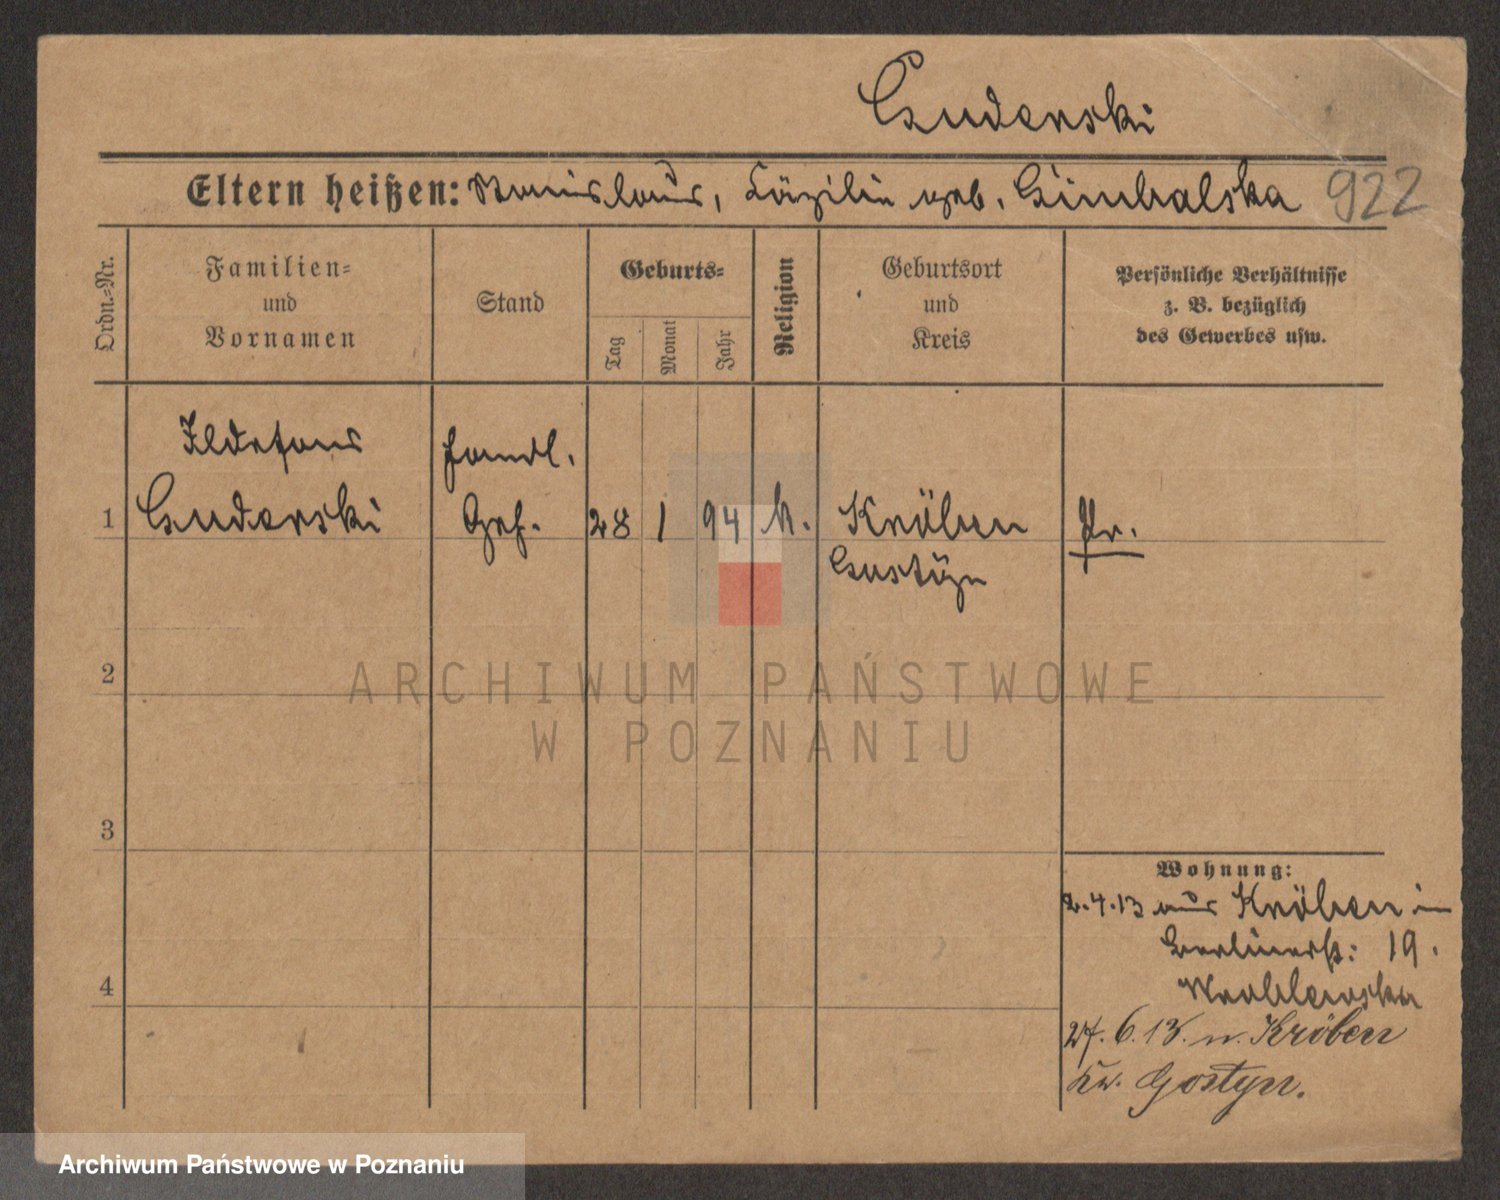 Guderski
Eltern heißen: Stanislaus, Cäzilie geb. Gimbalska 922
Ordn.=Nr.
Familien=
und
Vornamen
Stand
Geburts=
Tag
Monat
Jahr
Religion
Geburtsort
und
Kreis
Persönliche Verhältnisse
z. B. bezüglich
des Gewerbes usw.
Ildefons Handl.
1 Guderski Geh. 28 1 94 k. Kröben Pr.
Gostyn
2
3
4
Wohnung:
2.4.13 aus Kröben in
Berlinerstr: 19.
27.6.13. n. Kröben
Kr. Gostyn.
ARCHIWUM PAŃSTWOWE
W POZNANIU
Archiwum Państwowe w Poznaniu